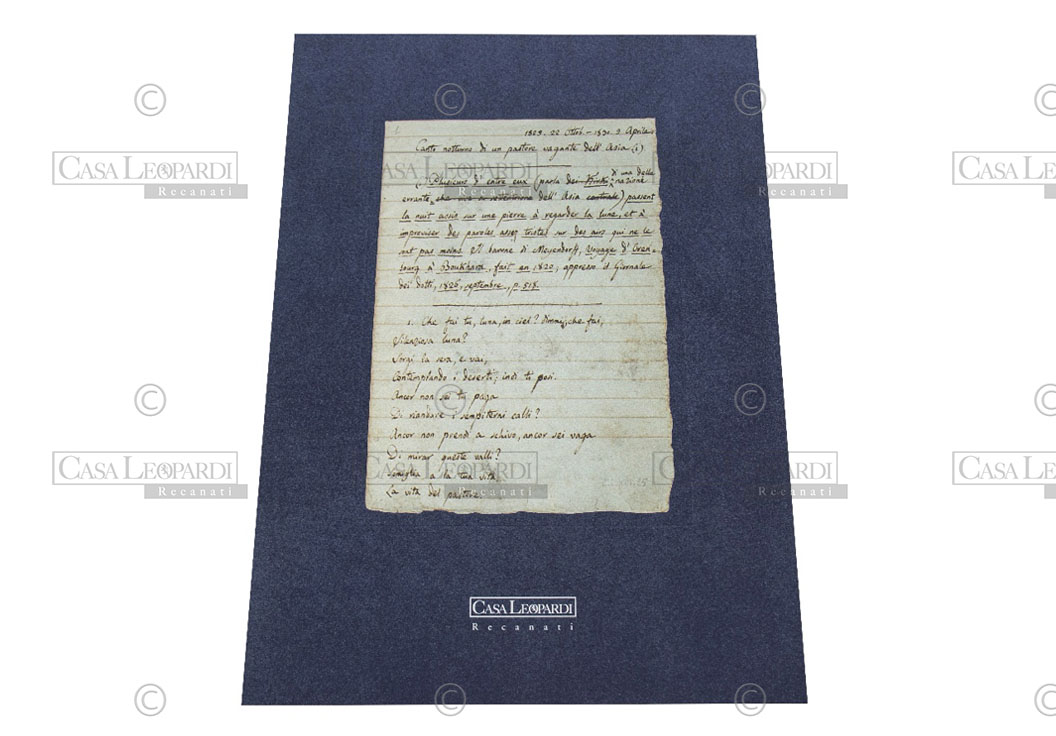 1829. 22 Ottob. - 1830. 9 Aprile.
Canto notturno di un pastore vagante dell'Asia (1)
(1) Plusieurs d'entre eux (parla dei di una delle nazioni
erranti dell'Asia centrale) passent
la nuit assis sur une pierre à regarder la lune, et à
improviser des paroles assez tristes sur des airs qui ne le
sont pas moins. Il barone di Meyendorff, Voyage d'Oren-
bourg à Boukhara, fait en 1820, appresso il Giornale
dei dotti, 1826, septembre, p. 518.
1. Che fai tu, luna, in ciel? dimmi, che fai,
Silenziosa luna?
Sorgi la sera, e vai,
Contemplando i deserti; indi ti posi.
Ancor non sei tu paga
Di riandare i sempiterni calli?
Ancor non prendi a schivo, ancor sei vaga
Di mirar queste valli?
Somiglia a la tua vita
La vita del pastore.
CASA LEOPARDI
Recanati
© © © ©
CASA LEOPARDI CASA LEOPARDI CASA LEOPARDI CASA LEOPARDI
Recanati Recanati Recanati Recanati
© © © ©
CASA LEOPARDI CASA LEOPARDI CASA LEOPARDI CASA LEOPARDI
Recanati Recanati Recanati Recanati
© © © ©